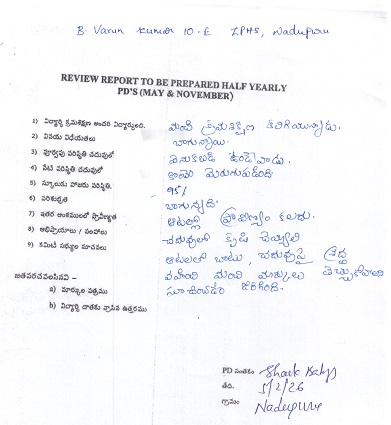 B. Varun Kumar 10-E ZPHS, Nadupuru
REVIEW REPORT TO BE PREPARED HALF YEARLY
PD'S (MAY & NOVEMBER)
1) విద్యార్థి క్రమశిక్షణ అందరి విద్యార్థులతో. మంచి క్రమశిక్షణ కలిగియున్నాడు.
2) వినయ విధేయతలు బాగున్నాయి.
3) పూర్వపు పరిస్థితి చదువులో వెనుకబడి ఉండేవాడు.
4) నేటి పరిస్థితి చదువులో కొంచెం మెరుగుపడింది.
5) స్కూలుకు హాజరు పరిస్థితి. 95%
6) పరిశుభ్రత బాగున్నది.
7) ఇతర అంశములలో ప్రావీణ్యత ఆటల్లో ప్రావీణ్యం కలదు.
8) అభిప్రాయాలు / సలహాలు చదువులో కృషి చెయ్యాలి
9) కమిటీ సభ్యుల సూచనలు ఆటలతో బాటు, చదువుపై శ్రద్ధ
వహించి మంచి మార్కులు తెచ్చుకోవాలని
జతపరచవలసినవి - సూచించడం జరిగింది.
a) మార్కుల పత్రము
b) విద్యార్థి దాతకు వ్రాసిన ఉత్తరము
PD సంతకం
తేది. 5/2/26
గ్రామం Nadupuru